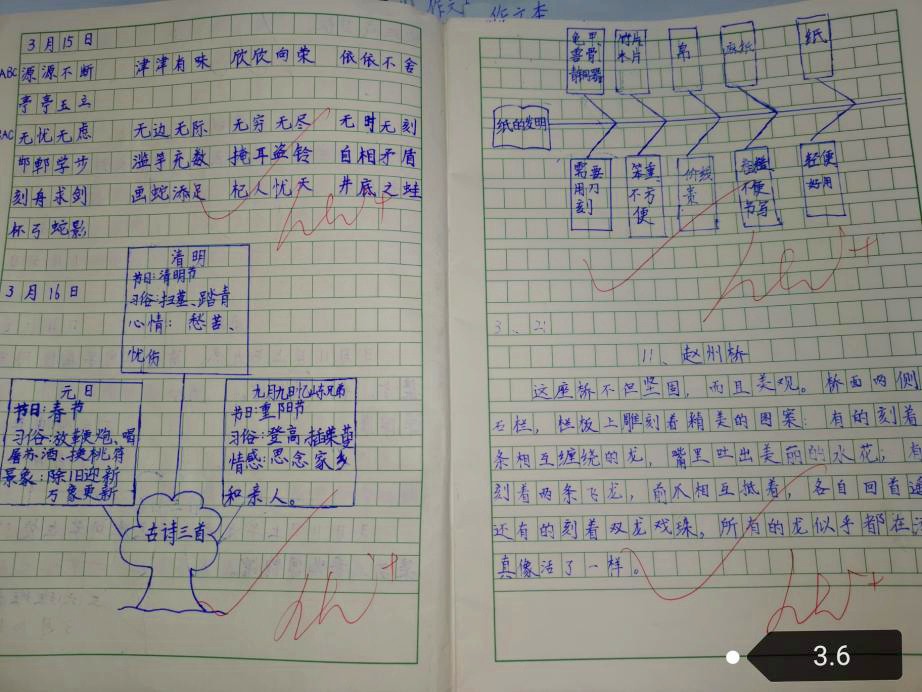 作文本
3月15日
ABC 源源不断 津津有味 欣欣向荣 依依不舍
亭亭玉立
无忧无虑 无边无际 无穷无尽 无时无刻
邯郸学步 滥竽充数 掩耳盗铃 自相矛盾
刻舟求剑 画蛇添足 杞人忧天 井底之蛙
杯弓蛇影
3月16日
清明
节日:清明节
习俗:扫墓、踏青
心情:愁苦、
忧伤
元日
节日:春节
习俗:放鞭炮、喝
屠苏酒、换桃符
景象:除旧迎新
万象更新
九月九日忆山东兄弟
节日:重阳节
习俗:登高、插茱萸
情感:思念家乡
和亲人。
古诗三首
龟甲
兽骨
青铜器
竹片
木片
帛
麻纸
纸
纸的发明
需要
用刀
刻
笨重
不方
便
价钱
贵
粗糙
不便
书写
轻便
好用
3、2
11、赵州桥
这座桥不但坚固,而且美观。桥面两侧
石栏,栏板上雕刻着精美的图案:有的刻着
条相互缠绕的龙,嘴里吐出美丽的水花,有
刻着两条飞龙,前爪相互抵着,各自回首遥
还有的刻着双龙戏珠,所有的龙似乎都在
真像活了一样。
3.6